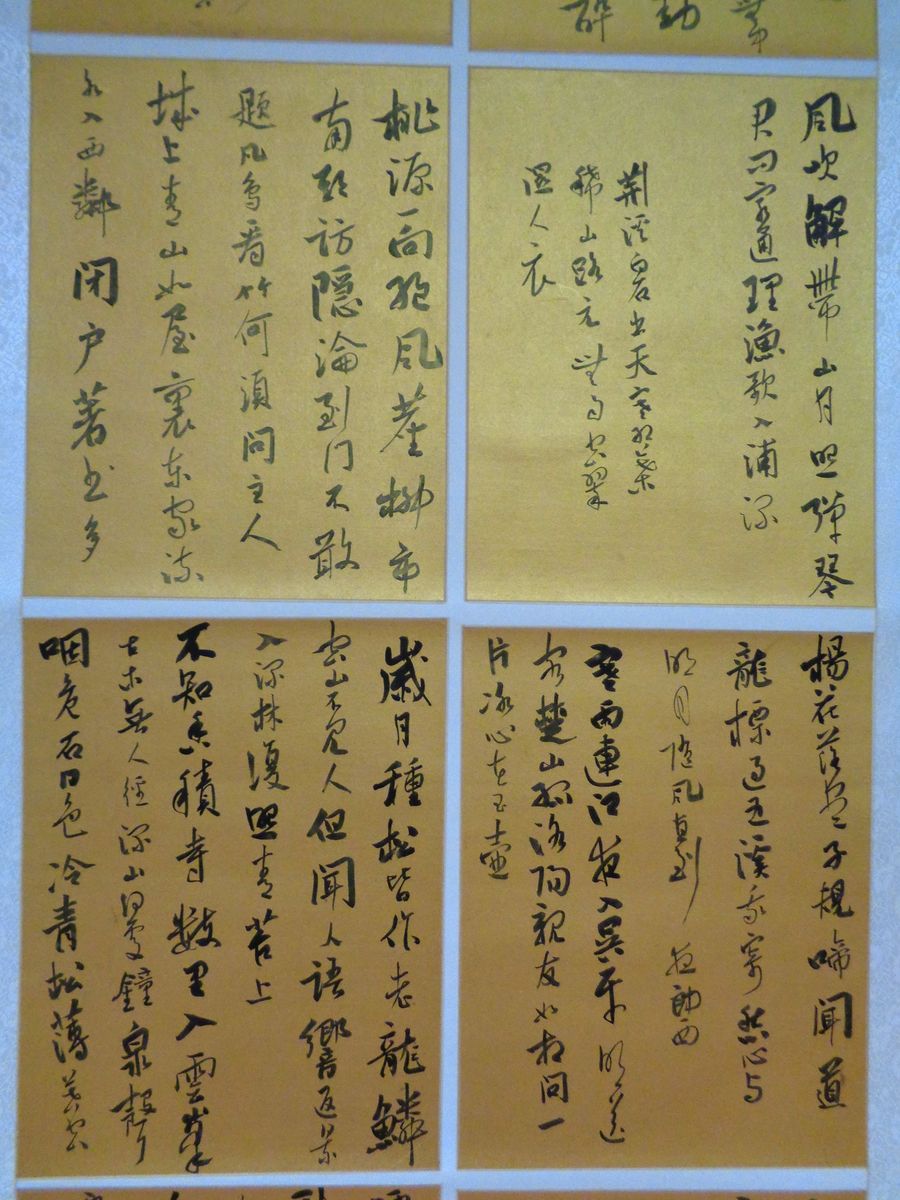 風吹解帶山月照彈琴
君问窮通理漁歌入浦深
荆溪白石出天寒紅葉
稀山路元無雨空翠
濕人衣
楊花落盡子規啼聞道
龍標過五溪我寄愁心与
明月随風直到夜郎西
寒雨連江夜入吴平明送
客楚山孤洛陽親友如相問一
片冰心在玉壺
桃源一向絕風塵柳市
南頭訪隱淪到門不敢
題凡鳥看竹何須問主人
城上青山如屋裏東家流
水入西鄰閉户著書多
歲月種松皆作老龍鱗
空山不見人但聞人語響返景
入深林復照青苔上
不知香積寺數里入雲峯
古木無人徑深山何處鐘泉聲
咽危石日色冷青松薄暮空